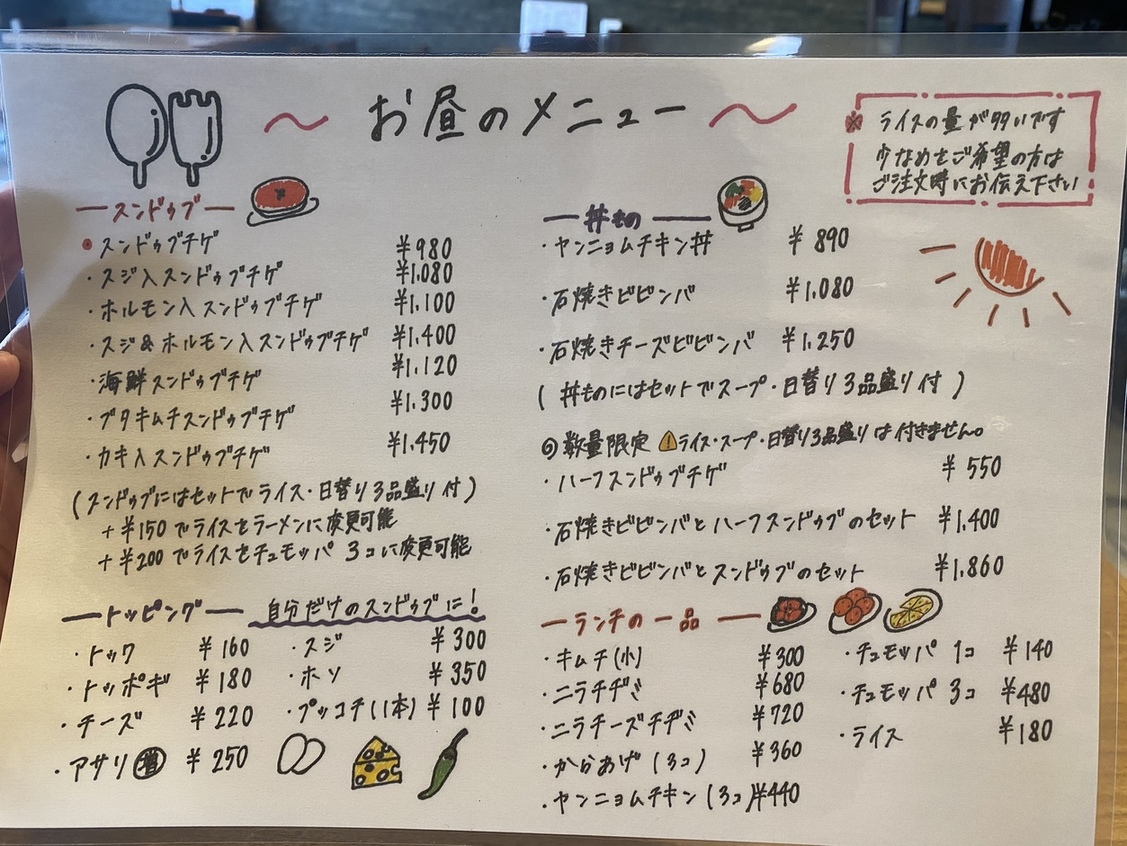 〜 お昼のメニュー 〜
※ ライスの量が多いです
少なめをご希望の方は
ご注文時にお伝え下さい
スンドゥブ
・スンドゥブチゲ ¥980
・スジ入スンドゥブチゲ ¥1.080
・ホルモン入スンドゥブチゲ ¥1.100
・スジ&ホルモン入スンドゥブチゲ ¥1.400
・海鮮スンドゥブチゲ ¥1.120
・ブタキムチスンドゥブチゲ ¥1.300
・カキ入スンドゥブチゲ ¥1.450
(スンドゥブにはセットでライス・日替り3品盛り付)
+¥150でライスをラーメンに変更可能
+¥200でライスをチュモッパ 3コに変更可能
トッピング 自分だけのスンドゥブに!
・トック ¥160
・トッポギ ¥180
・チーズ ¥220
・アサリ増 ¥250
・スジ ¥300
・ホソ ¥350
・プッコチ(1本) ¥100
丼もの
・ヤンニョムチキン丼 ¥890
・石焼きビビンバ ¥1.080
・石焼きチーズビビンバ ¥1.250
(丼ものにはセットでスープ・日替り3品盛り付)
◎数量限定 ⚠ライス・スープ・日替り3品盛りは付きません。
・ハーフスンドゥブチゲ ¥550
・石焼きビビンバとハーフスンドゥブのセット ¥1.400
・石焼きビビンバとスンドゥブのセット ¥1.860
ランチの一品
・キムチ(小) ¥300
・ニラチヂミ ¥680
・ニラチーズチヂミ ¥720
・からあげ(3コ) ¥360
・ヤンニョムチキン(3コ) ¥440
・チュモッパ 1コ ¥140
・チュモッパ 3コ ¥480
・ライス ¥180